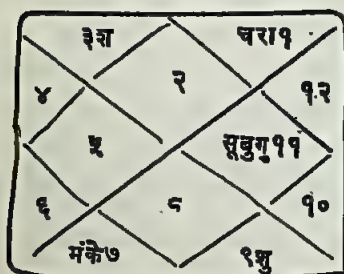 ३श चरा१
२
४ १२
५ सूबुगु११
६ ८ १०
मंके७ ९शु